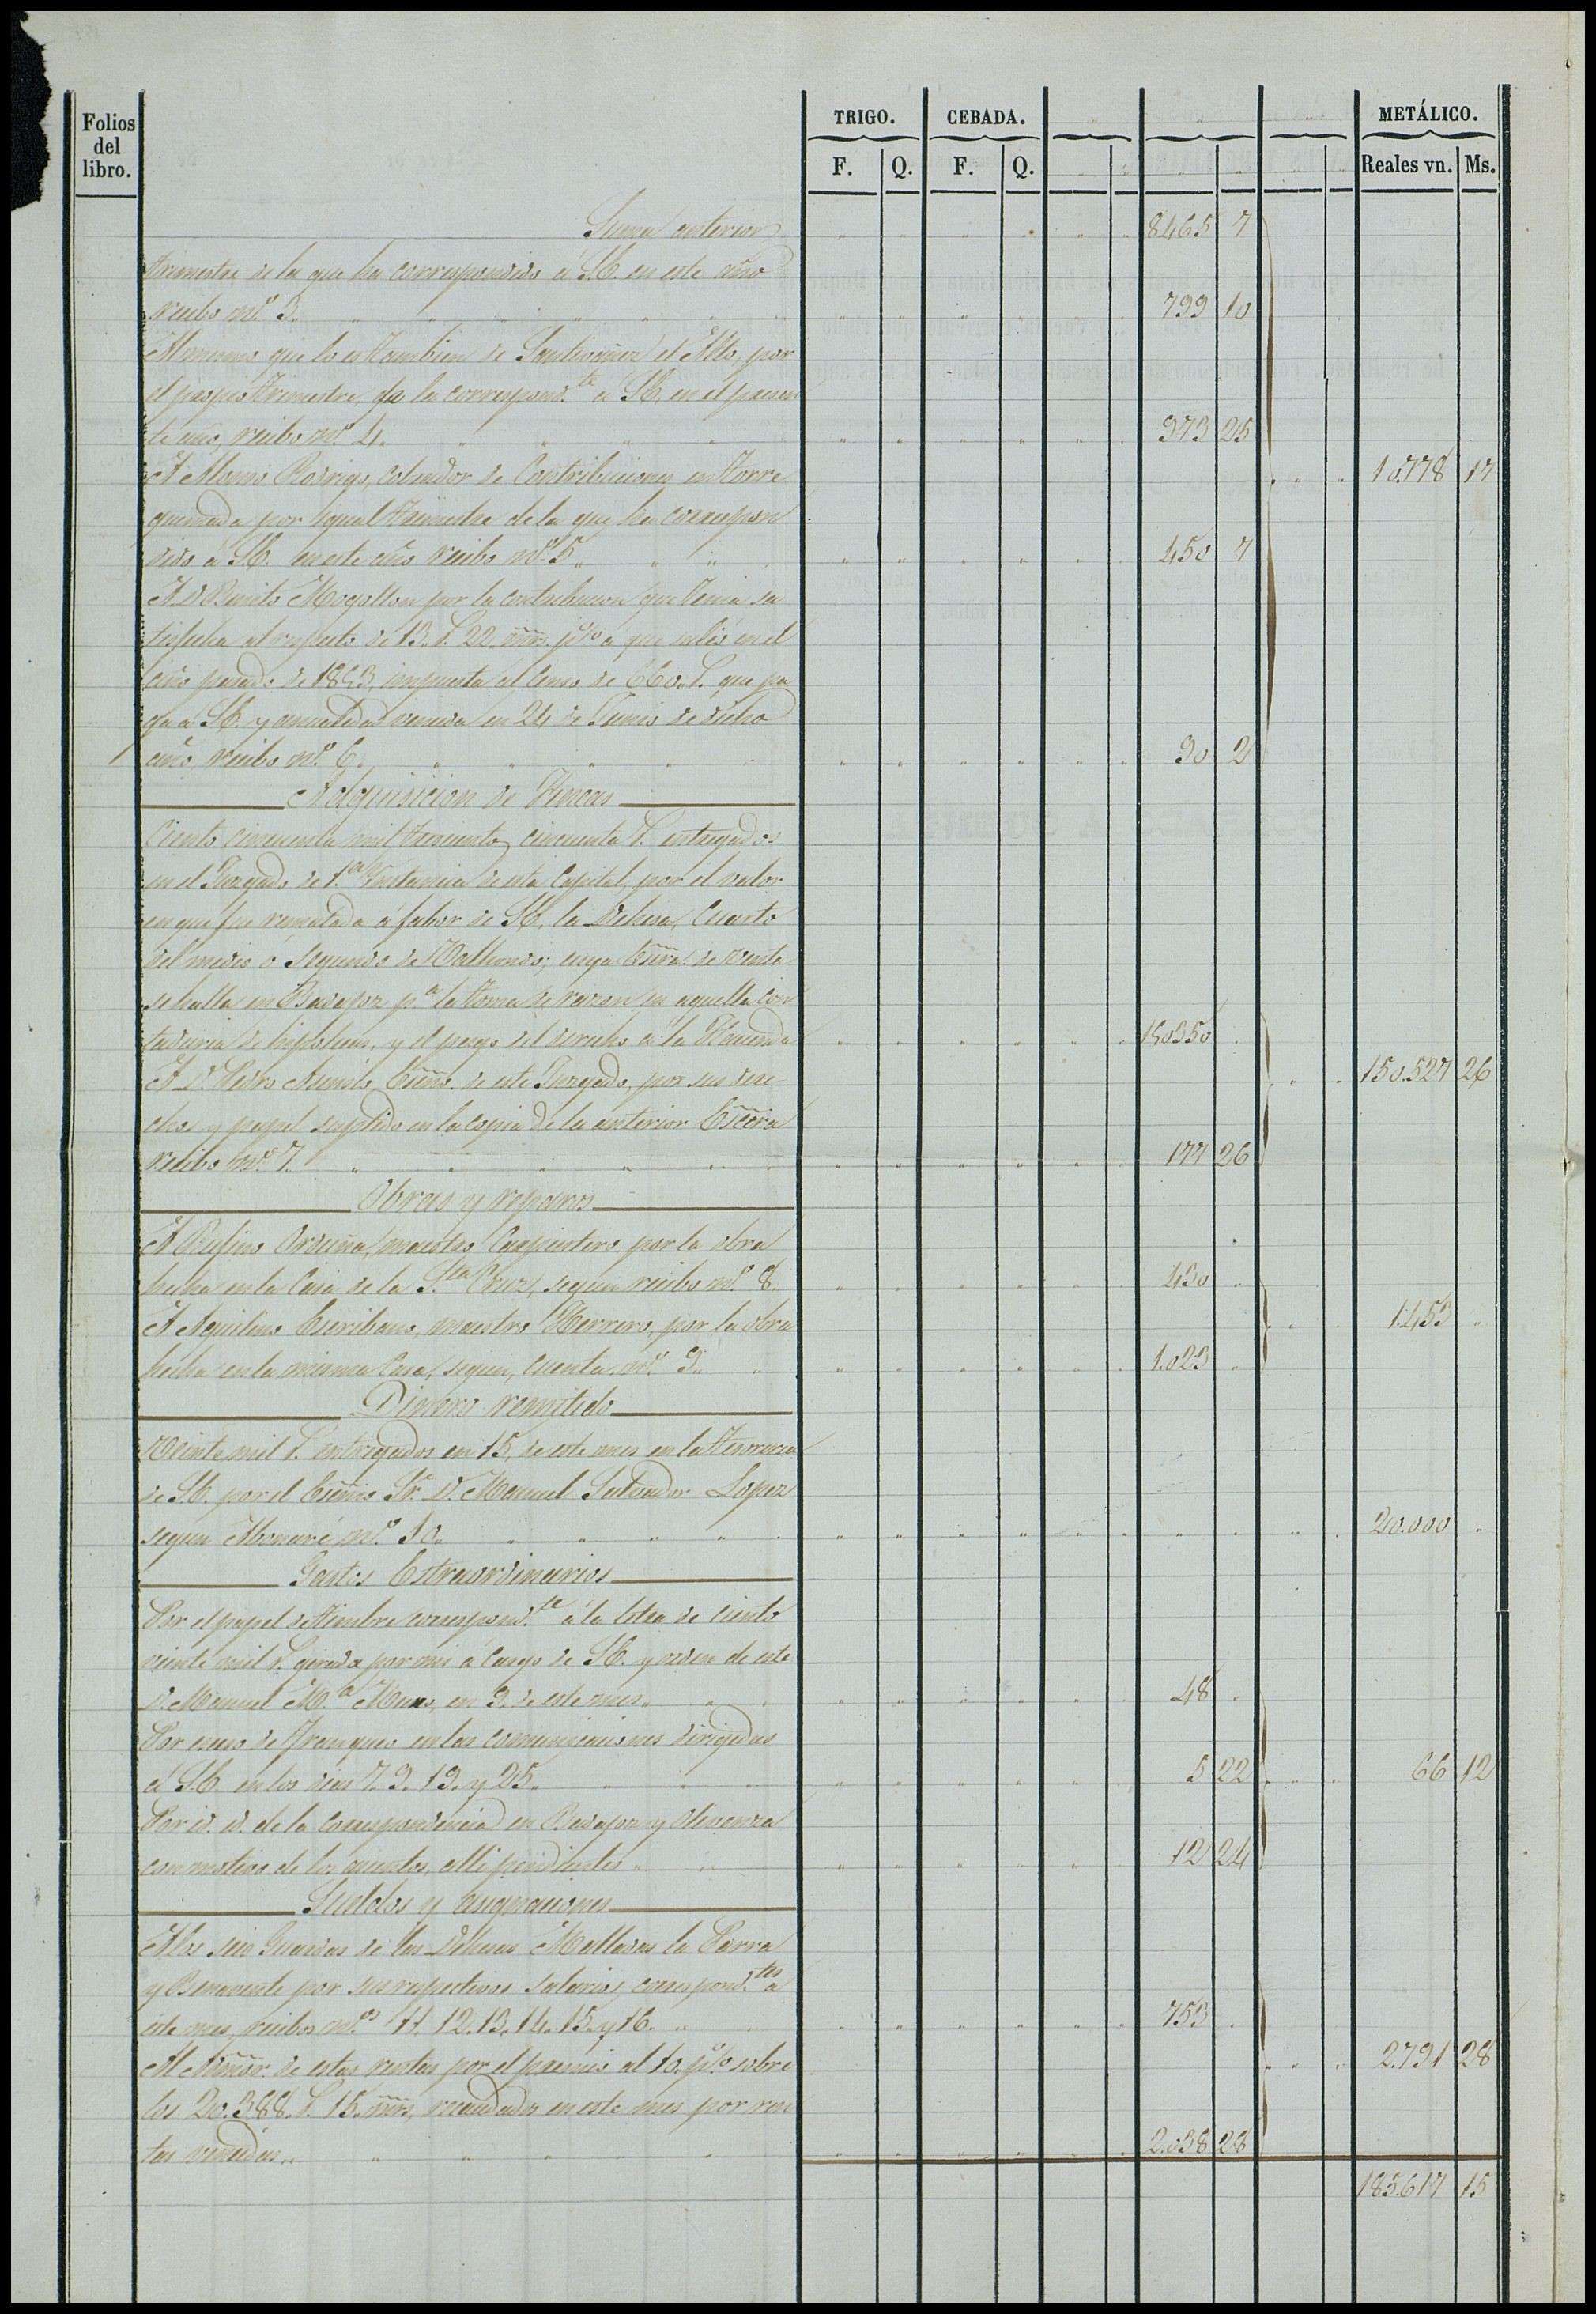 Folios del libro. TRIGO. CEBADA. METÁLICO.
F. Q. F. Q. Reales vn. Ms.
Suma anterior 8465 7
trimestre de la que ha correspondido á S.E. en este año
recibo nº. 3. 799 10
Al mismo que lo es tambien de Santivañez el Alto, por
el propio trimestre de la correspondte. a S.E. en el presen
te año, recibo nº. 4. 973 25
A Alonso Rodrigo, cobrador de Contribuciones en Torre 10.778 17
quemada por igual trimestre de la que ha correspon
dido á S.E. en este año recibo nº. 5. 450 7
A D. Benito Mogollon por la contribucion que tenia sa
tisfecha al respecto de 13. r. 22. mrs. pº/o a que salió en el
año pasado de 1853, impuesta al Censo de 660. r. que pa
ga a S.E. y anualidad vencida en 24 de Junio de dicho
año, recibo nº. 6. 90 2
Adquisicion de Fincas
Ciento cincuenta mil trescientos cincuenta r. entregados
en el Juzgado de 1.ª Instancia de esta Capital, por el valor
en que fue rematada á fabor de S.E. la Dehesa, Cuarto
del medio ó segundo de Valhondo; cuya Escra. de venta
se halla en Badajoz pª. la toma de razon en aquella con
taduria de hipotecas, y el pago del derecho á la Hacienda 150350
A D. Pedro Asensio, Escno. de este Juzgado, por sus dere 150.527 26
chos y papel suplido en la copia de la anterior Escra
recibo nº. 7. 177 26
Obras y reparos
A Rufino Orduña, maestro Carpintero por la obra
hecha en la Casa de la Sta. Cruz, segun recibo nº. 8. 430
A Aquilino Escribano, maestro Herrero, por la obra 1.453
hecha en la misma Casa, segun, cuenta nº. 9. 1.023
Dinero remitido
Veinte mil r. entregados en 15, de este mes en la Tesoreria
de S.E. por el Escmo. Sr. D. Manuel Salvador Lopez
segun Abonaré nº. 10. 20.000
Gastos Estraordinarios
Por el papel de timbre correspondte. á la letra de ciento
veinte mil r. girada por mi á cargo de S.E. y orden de este
D. Manuel M.ª Muro, en 9. de este mes. 48
Por esceso de franqueo en las comunicaciones dirigidas
á S.E. en los dias 7. 9. 19. y 25. 5 22 66 12
Por id. id. de la correspondencia en Badajoz y Olivenza
con motivo de los asuntos alli pendientes 12 24
Sueldos y asignaciones
A los seis Guardas de las Dehesas Malladas la Parra
y Benavente por sus respectivos salarios, correspondtes. a
este mes, recibos nºs. 11. 12. 13. 14. 15. y 16. 753
Al Admor. de estas rentas por el premio al 10. pº/o sobre 2.791 28
los 20.388. r. 15. mrs, recaudados en este mes por ren
tas vencidas. 2.038 28
185.617 15